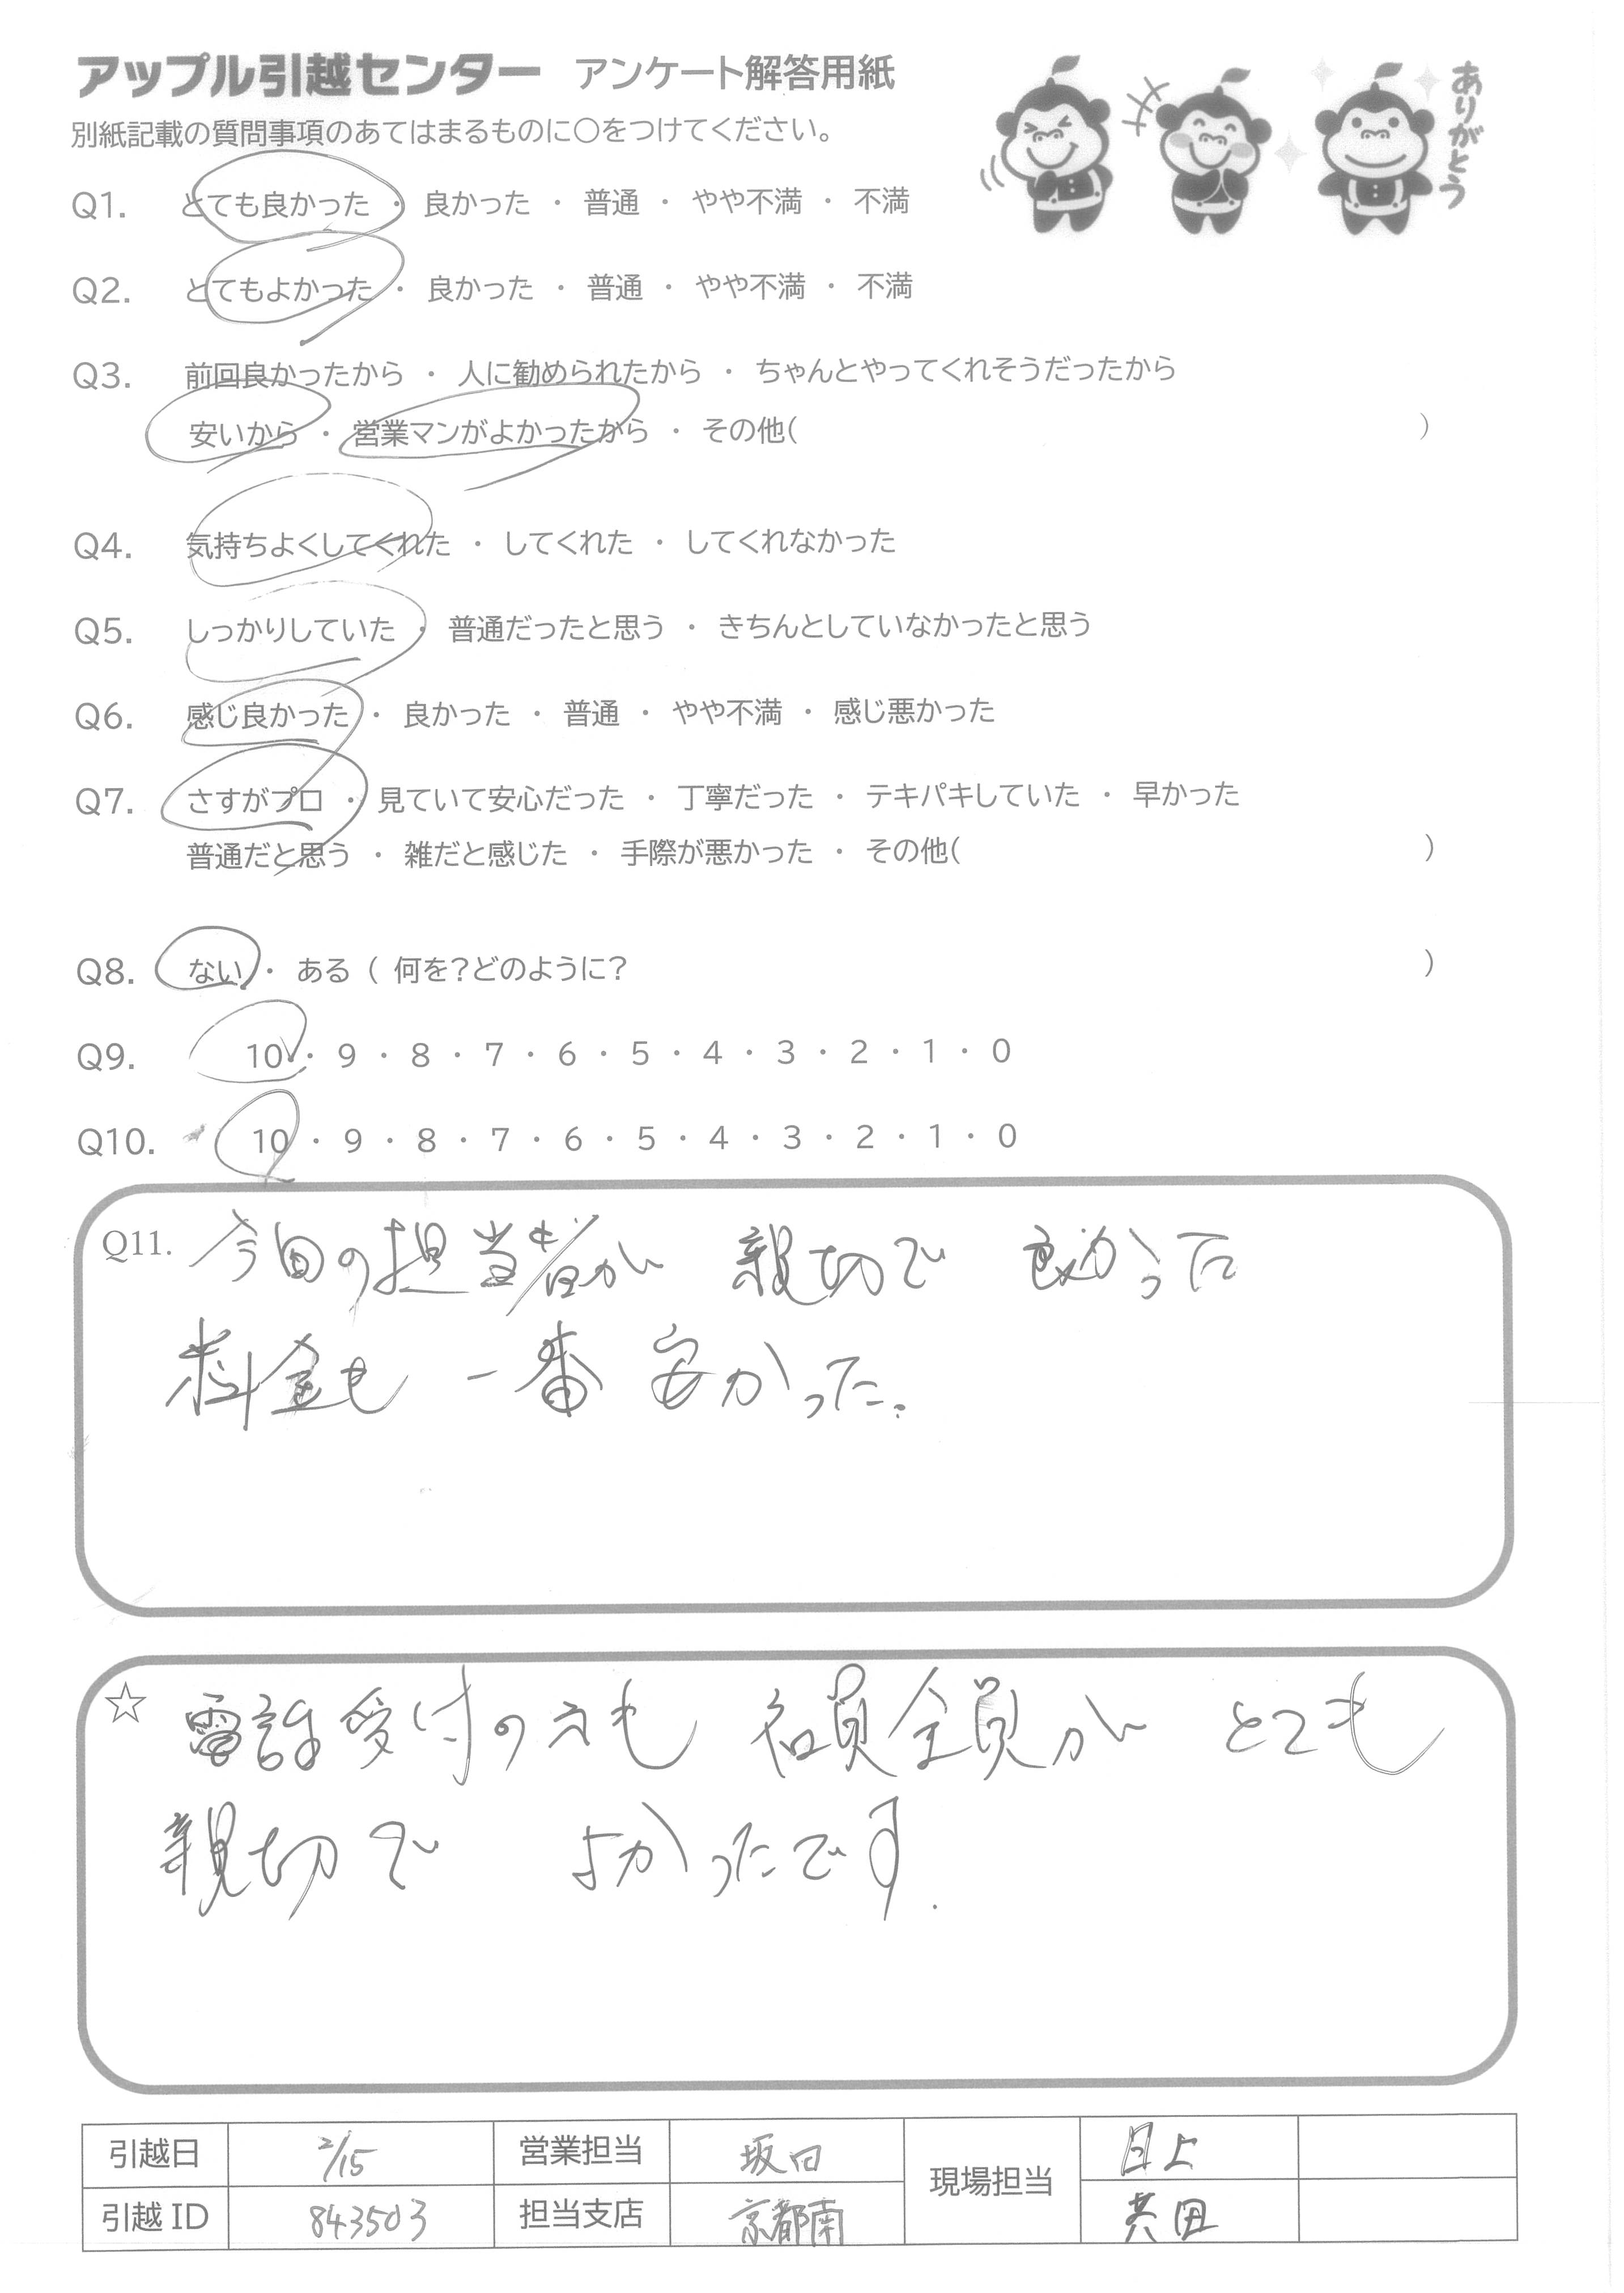 アップル引越センター アンケート解答用紙
ありがとう
別紙記載の質問事項のあてはまるものに○をつけてください。
Q1. とても良かった ・ 良かった ・ 普通 ・ やや不満 ・ 不満
Q2. とてもよかった ・ 良かった ・ 普通 ・ やや不満 ・ 不満
Q3. 前回良かったから ・ 人に勧められたから ・ ちゃんとやってくれそうだったから
安いから ・ 営業マンがよかったから ・ その他( )
Q4. 気持ちよくしてくれた ・ してくれた ・ してくれなかった
Q5. しっかりしていた ・ 普通だったと思う ・ きちんとしていなかったと思う
Q6. 感じ良かった ・ 良かった ・ 普通 ・ やや不満 ・ 感じ悪かった
Q7. さすがプロ ・ 見ていて安心だった ・ 丁寧だった ・ テキパキしていた ・ 早かった
普通だと思う ・ 雑だと感じた ・ 手際が悪かった ・ その他( )
Q8. ない ・ ある ( 何を?どのように? )
Q9. 10 ・ 9 ・ 8 ・ 7 ・ 6 ・ 5 ・ 4 ・ 3 ・ 2 ・ 1 ・ 0
Q10. 10 ・ 9 ・ 8 ・ 7 ・ 6 ・ 5 ・ 4 ・ 3 ・ 2 ・ 1 ・ 0
Q11. 今回の担当者が 親切で 良かった
料金も 一番 安かった。
☆ 電話受付の方も 社員全員が とても
親切で よかったです.
引越日 2/15 営業担当 坂口 現場担当 日上
引越ID 843503 担当支店 京都南 共田